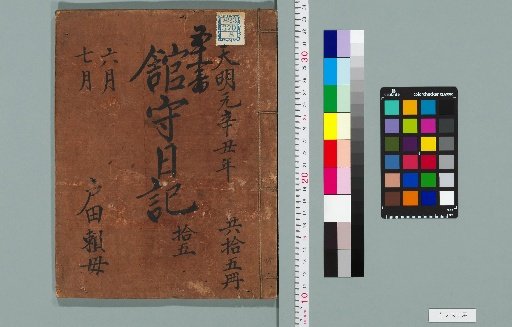 天明元辛丑年
共拾五冊
館守日記
拾五
六月
七月
戸田頼母
30
20
10
colorchecker CLASSIC